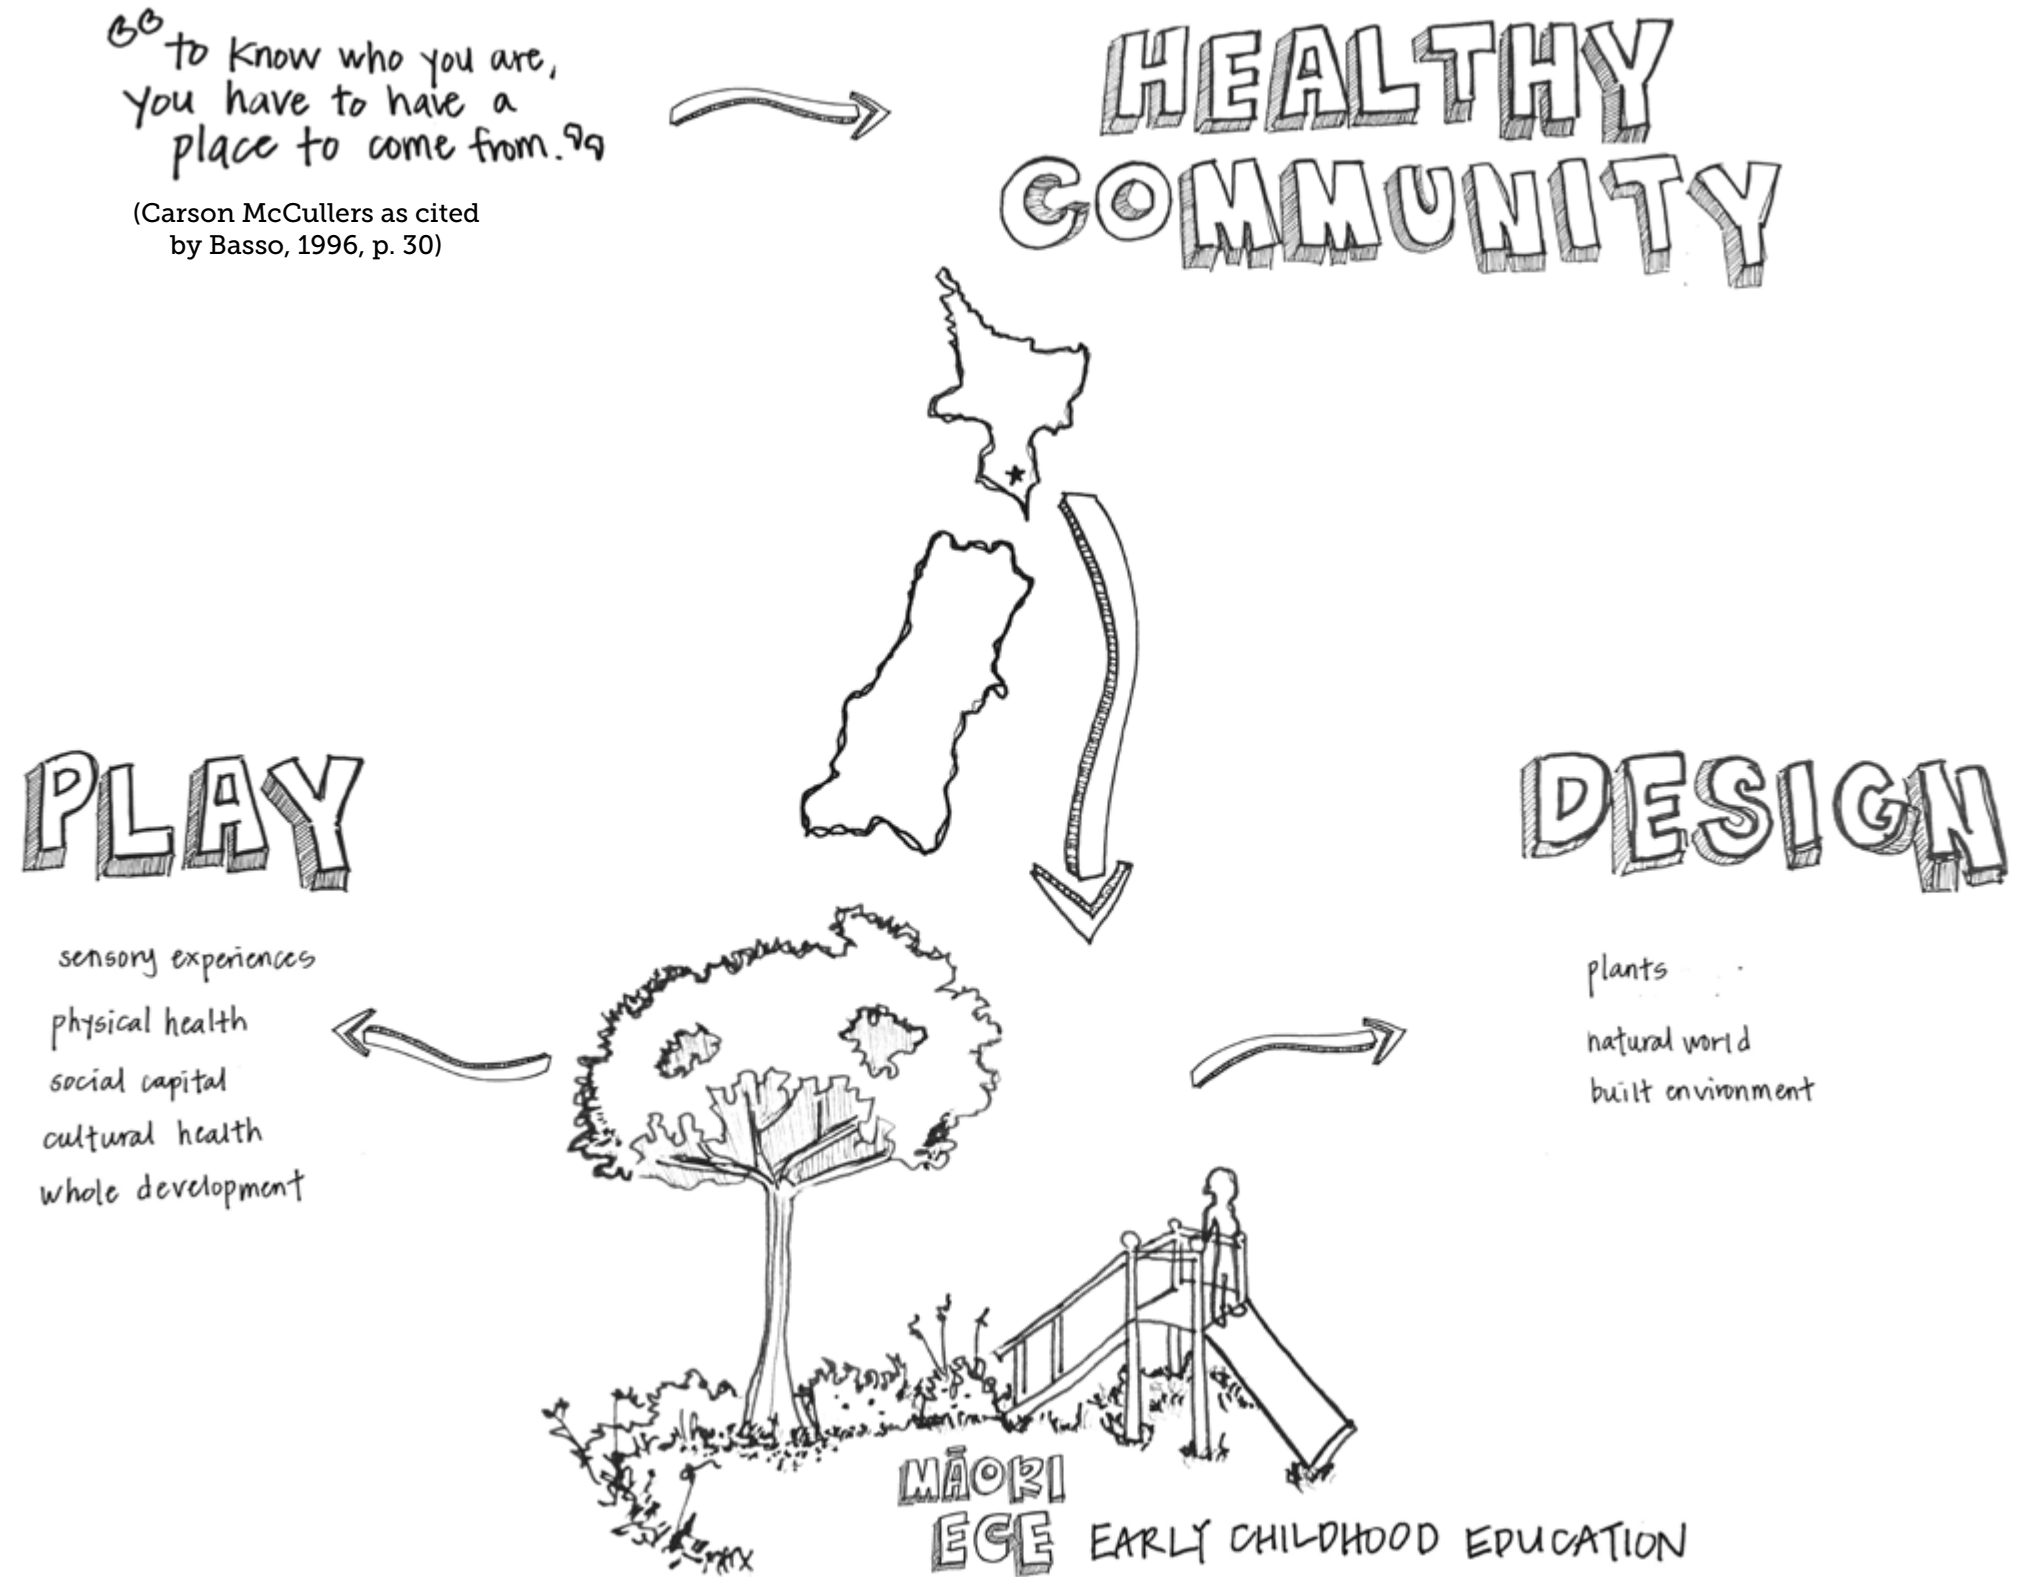 “to know who you are,
you have to have a
place to come from.”
(Carson McCullers as cited
by Basso, 1996, p. 30)
HEALTHY
COMMUNITY
PLAY
sensory experiences
physical health
social capital
cultural health
whole development
DESIGN
plants
natural world
built environment
MĀORI
ECE EARLY CHILDHOOD EDUCATION